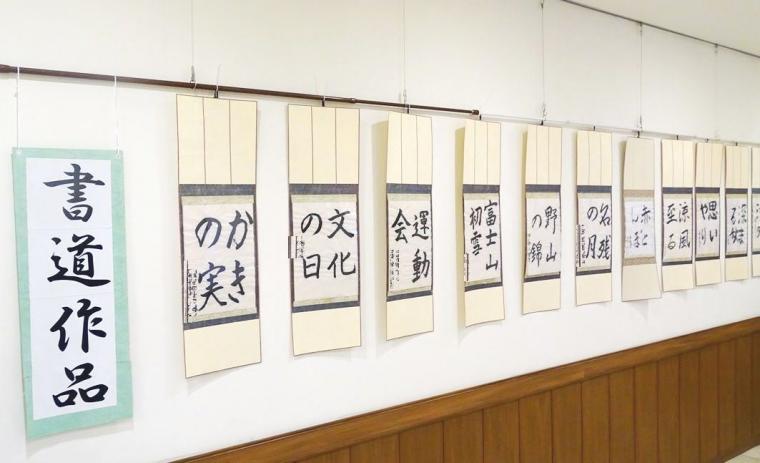 書道作品
かき
の実
文化
の日
運動
会
富士山
初雪
野山
の錦
名残
の月
赤と
んぼ
涼風
至る
思い
やり